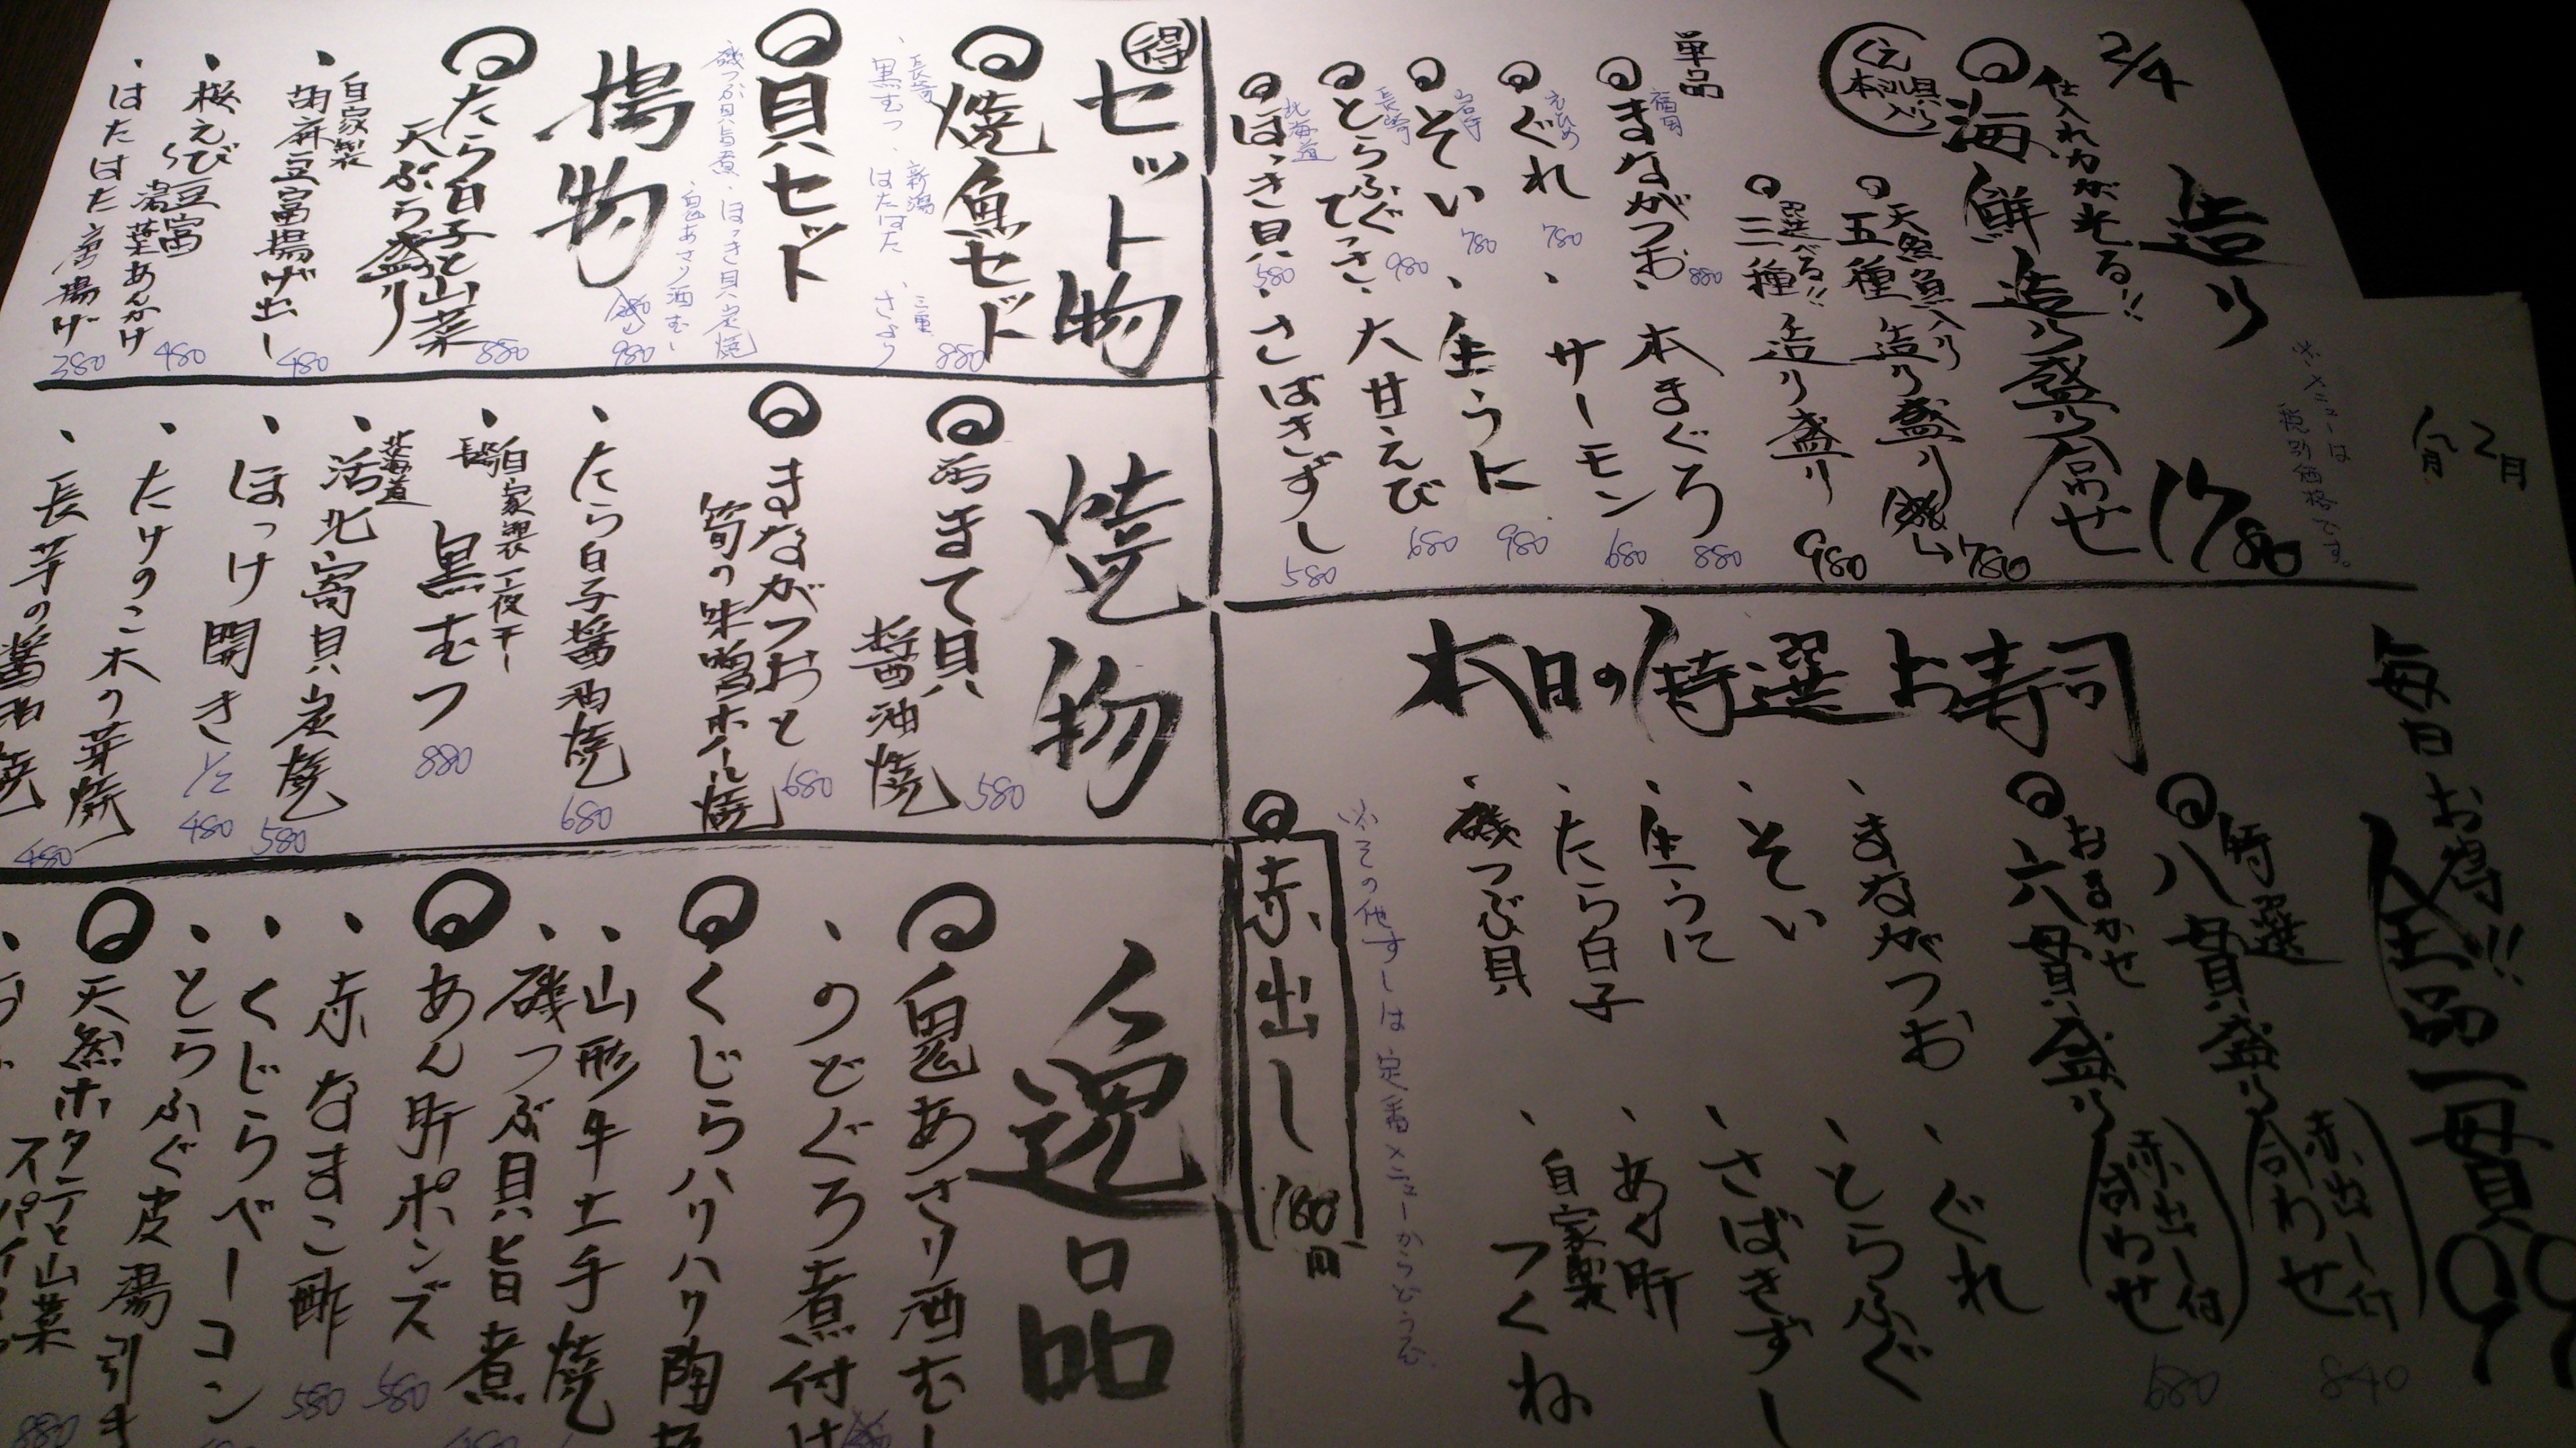 2/4
造り
仕入れ力が光る!!
海鮮造り盛り合わせ 1780
天然魚入り
五種造り盛り
780
選べる!!
三種造り盛り 980
単品
福岡
まながつお 880
本まぐろ 880
えひめ
ぐれ 780
サーモン 680
岩手
そい 780
生うに 980
長崎
とらふぐてっさ 980
大甘えび 680
北海道
ほっき貝 580
さばきずし 580
本日の特選お寿司
特選
八貫盛り
(赤出し付 合わせ) 840
おまかせ
六貫盛り
(赤出し付 合わせ) 680
まながつお
ぐれ
そい
とらふぐ
生うに
さばきずし
たら白子
あん肝
磯つぶ貝
自家製
つくね
※その他すしは定番メニューからどうぞ
赤出し 180円
得
セット物
焼魚セット 880
長崎
黒むつ
新潟
はたはた
三重
さより
貝セット 980
磯つぶ貝旨煮
ほっき貝炭焼
鬼あさり酒むし
揚物
たら白子と山菜
天ぷら盛り 880
自家製
胡麻豆富揚げ出し 480
桜えび豆富
湯葉あんかけ 480
はたはた唐揚げ 380
焼物
活まて貝
醤油焼 580
まながつおと
筍の味噌ホイル焼 680
たら白子醤油焼 680
自家製一夜干し
長崎
黒むつ 880
北海道
活北寄貝炭焼 580
ほっけ開き 1/2 480
たけのこ木の芽焼
長芋の醤油焼 480
逸品
鬼あさり酒むし
のどぐろ煮付け
くじらハリハリ陶板
山形牛土手焼
磯つぶ貝旨煮
あん肝ポンズ 580
赤なまこ酢 580
くじらベーコン
とらふぐ皮湯引き
天然ホタテと山菜 880
毎日お得!!
全品一貫99
※メニューは
税別価格です。
2月